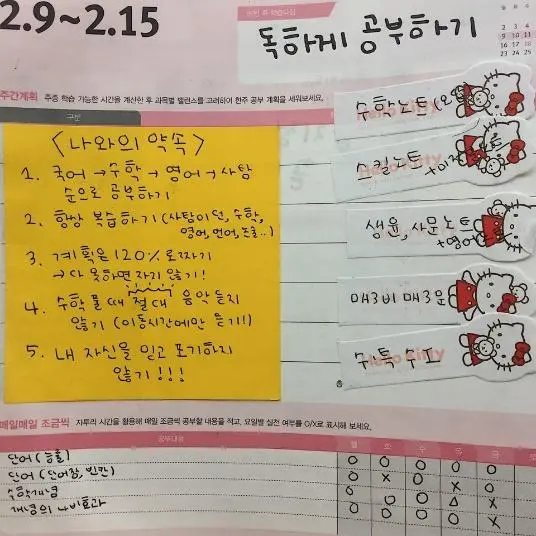 2.9~2.15
독하게 공부하기
2 3 4
9 10 11
16 17 18
23 24 25
주간계획 주중 학습 가능한 시간을 계산한 후 과목별 밸런스를 고려하여 한주 공부 계획을 세워보세요.
구분
<나와의 약속>
1. 국어→수학→영어→사탐
순으로 공부하기
2. 항상 복습하기(사탐이던, 수학,
영어, 언어, 논술..)
3. 계획은 120%로짜기
→다 못하면 자지 않기!
4. 수학 풀 때 절대 음악 듣지
않기 (이동시간에만 듣기!)
5. 내 자신을 믿고 포기하지
않기!!!
수학노트(오
스킬노트
생윤, 사문노트
+영어
매3비 매3문
수특 수
매일매일 조금씩 자투리 시간을 활용해 매일 조금씩 공부할 내용을 적고, 요일별 실천 여부를 O/X로 표시해 보세요.
공부내용 월 화 수 목 금
단어(능률) O O O O O
단어(단어장, 빈칸) O X O X O
수학개념 O O O △ X
개념의 나비효과 O O X